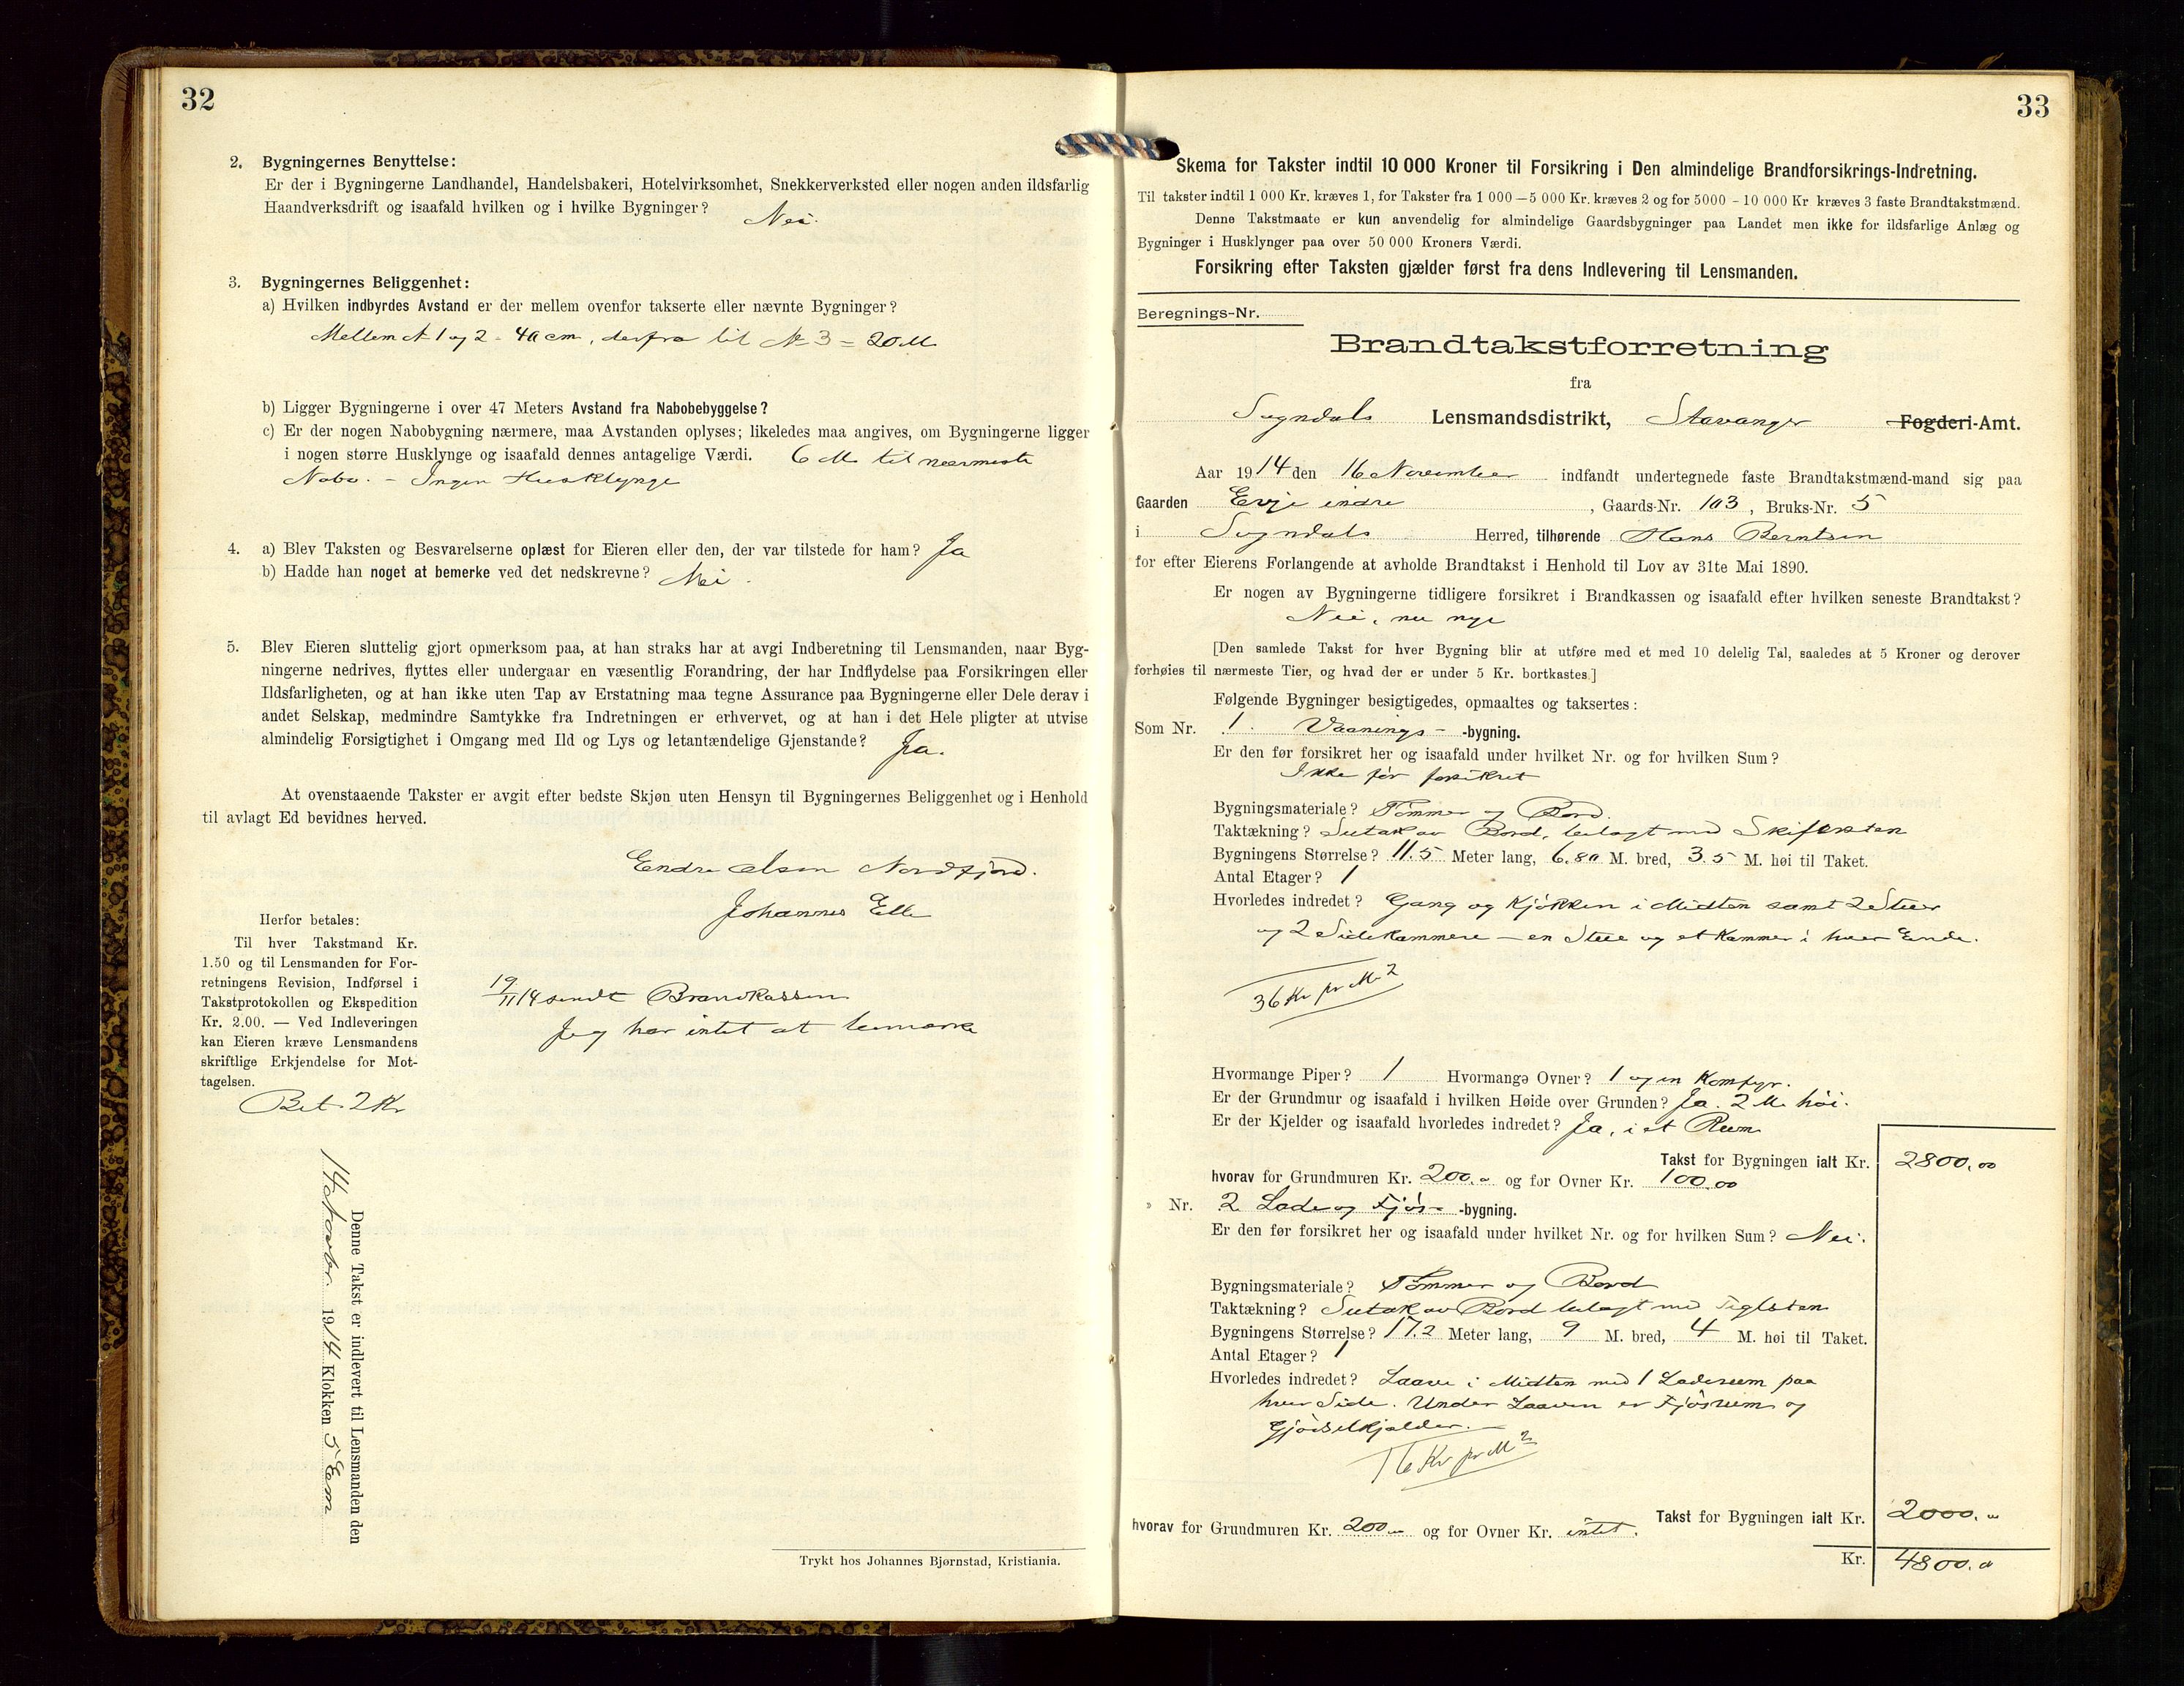 32
2. Bygningernes Benyttelse:
Er der i Bygningerne Landhandel, Handelsbakeri, Hotelvirksomhet, Snekkerverksted eller nogen anden ildsfarlig
Haandverksdrift og isaafald hvilken og i hvilke Bygninger? Nei.
3. Bygningernes Beliggenhet:
a) Hvilken indbyrdes Avstand er der mellem ovenfor takserte eller nævnte Bygninger?
Mellem № 1 og 2 - 40 cm, derfra til № 3 = 20 M
b) Ligger Bygningerne i over 47 Meters Avstand fra Nabobebyggelse?
c) Er der nogen Nabobygning nærmere, maa Avstanden oplyses; likeledes maa angives, om Bygningerne ligger
i nogen større Husklynge og isaafald dennes antagelige Værdi. 6 M til nærmeste
Nabo. - Ingen Husklynge
4. a) Blev Taksten og Besvarelserne oplæst for Eieren eller den, der var tilstede for ham? Ja
b) Hadde han noget at bemerke ved det nedskrevne? Nei.
5. Blev Eieren sluttelig gjort opmerksom paa, at han straks har at avgi Indberetning til Lensmanden, naar Byg-
ningerne nedrives, flyttes eller undergaar en væsentlig Forandring, der har Indflydelse paa Forsikringen eller
Ildsfarligheten, og at han ikke uten Tap av Erstatning maa tegne Assurance paa Bygningerne eller Dele derav i
andet Selskap, medmindre Samtykke fra Indretningen er erhvervet, og at han i det Hele pligter at utvise
almindelig Forsigtighet i Omgang med Ild og Lys og letantændelige Gjenstande? Ja.
At ovenstaaende Takster er avgit efter bedste Skjøn uten Hensyn til Bygningernes Beliggenhet og i Henhold
til avlagt Ed bevidnes herved.
Endre Olsen Nordfjord.
Johannes Elle
Herfor betales:
Til hver Takstmand Kr.
1.50 og til Lensmanden for For-
retningens Revision, Indførsel i
Takstprotokollen og Ekspedition
Kr. 2.00. — Ved Indleveringen
kan Eieren kræve Lensmandens
skriftlige Erkjendelse for Mot-
tagelsen.
Bet. 2 Kr
19/11 14 sendt Brandkassen
Jeg har intet at bemærke
Denne Takst er indlevert til Lensmanden den
1914 Klokken 5 Em
Trykt hos Johannes Bjørnstad, Kristiania.
33
Skema for Takster indtil 10 000 Kroner til Forsikring i Den almindelige Brandforsikrings-Indretning.
Til takster indtil 1 000 Kr. kræves 1, for Takster fra 1 000—5 000 Kr. kræves 2 og for 5000 - 10 000 Kr kræves 3 faste Brandtakstmænd.
Denne Takstmaate er kun anvendelig for almindelige Gaardsbygninger paa Landet men ikke for ildsfarlige Anlæg og
Bygninger i Husklynger paa over 50 000 Kroners Værdi.
Forsikring efter Taksten gjælder først fra dens Indlevering til Lensmanden.
Beregnings-Nr.
Brandtakstforretning
fra
Sogndals Lensmandsdistrikt, Stavanger Fogderi-Amt.
Aar 1914 den 16 November indfandt undertegnede faste Brandtakstmænd-mand sig paa
Gaarden Evje indre, Gaards-Nr. 103, Bruks-Nr. 5
i Sogndals Herred, tilhørende Hans Berntsen
for efter Eierens Forlangende at avholde Brandtakst i Henhold til Lov av 31te Mai 1890.
Er nogen av Bygningerne tidligere forsikret i Brandkassen og isaafald efter hvilken seneste Brandtakst?
Nei, nu nye
[Den samlede Takst for hver Bygning blir at utføre med et med 10 delelig Tal, saaledes at 5 Kroner og derover
forhøies til nærmeste Tier, og hvad der er under 5 Kr. bortkastes.]
Følgende Bygninger besigtigedes, opmaaltes og taksertes:
Som Nr. 1. Vaanings- -bygning.
Er den før forsikret her og isaafald under hvilket Nr. og for hvilken Sum?
Ikke før forsikret
Bygningsmateriale? Tømmer og Bord.
Taktækning? Sutak av Bord, belagt med Skifersten
Bygningens Størrelse? 11.5 Meter lang, 6.80 M. bred, 3.5 M. høi til Taket.
Antal Etager? 1
Hvorledes indredet? Gang og Kjøkken i Midten samt 2 Stuer
og 2 Sidekammere - en Stue og et Kammer i hver Ende.
36 Kr pr M²
Hvormange Piper? 1 Hvormange Ovner? 1 og en Komfyr.
Er der Grundmur og isaafald i hvilken Høide over Grunden? Ja. 2 M. høi.
Er der Kjelder og isaafald hvorledes indredet? Ja, i et Rum
Takst for Bygningen ialt Kr. 2800,00
hvorav for Grundmuren Kr. 200.- og for Ovner Kr. 100,00
» Nr. 2 Lade og Fjøs- -bygning.
Er den før forsikret her og isaafald under hvilket Nr. og for hvilken Sum? Nei.
Bygningsmateriale? Tømmer og Bord
Taktækning? Sutak av Bord belagt med Teglsten
Bygningens Størrelse? 17.2 Meter lang, 9 M. bred, 4 M. høi til Taket.
Antal Etager? 1
Hvorledes indredet? Laave i Midten med 1 Laderum paa
hver Side. Under Laaven er Fjøsrum og
Gjødselkjelder.
16 Kr pr M²
Takst for Bygningen ialt Kr. 2000.-
hvorav for Grundmuren Kr. 200.- og for Ovner Kr. intet.
Kr. 4800.-